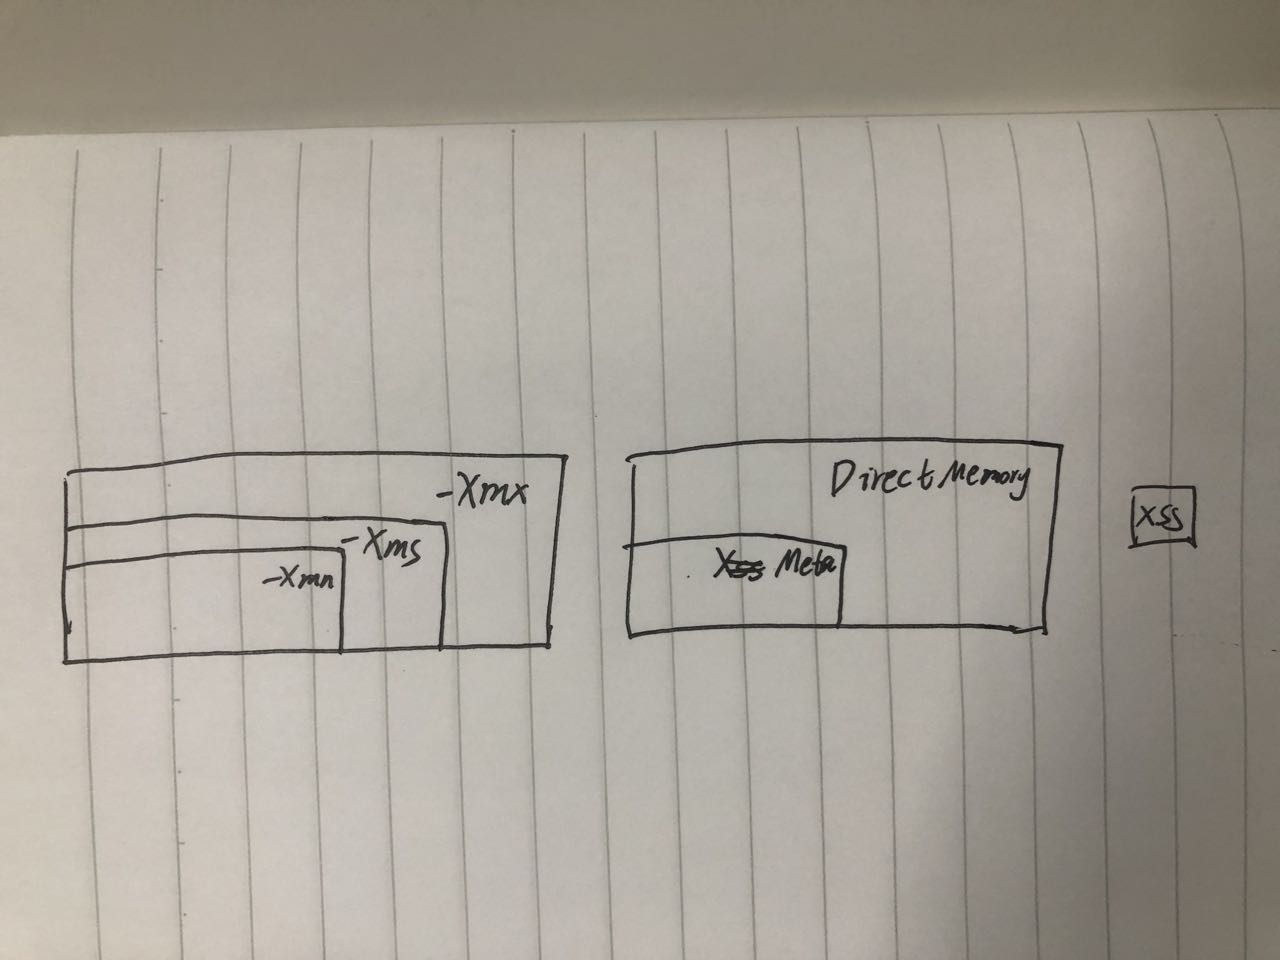 -Xmx
-Xms
-Xmn
Direct Memory
Xss Meta
XSS